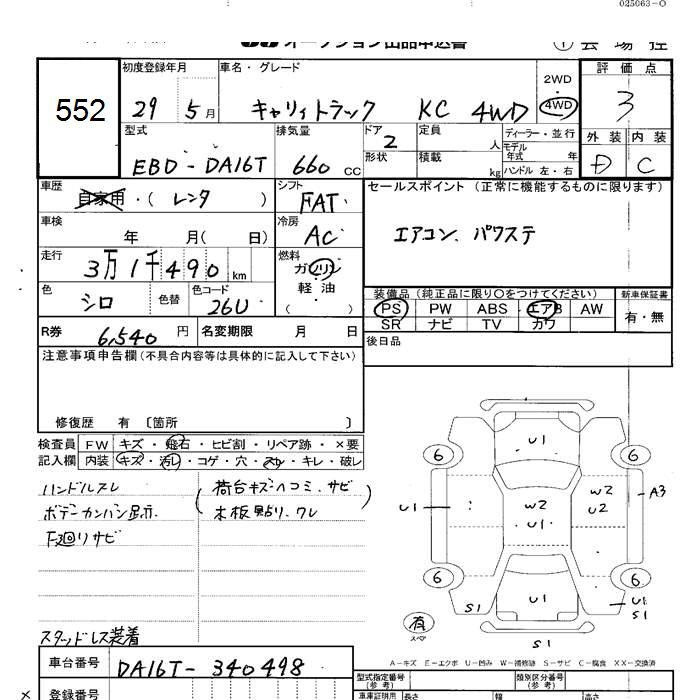 025063-0
オークション出品申込書
① 会場控
552
初度登録年月
29 5月
車名・グレード
キャリィトラック KC 4WD
2WD
4WD
評価点
3
外装 内装
D C
型式
EBD-DA16T
排気量
660 CC
ドア 2
形状
定員 人
積載 kg
ディーラー・並行
モデル年式 年
ハンドル 左・右
車歴
自家用・(レンタ )
シフト
FAT
セールスポイント (正常に機能するものに限ります)
エアコン、パワステ
車検
年 月( 日)
冷房
AC
走行
3万1千490km
燃料
ガソリン
軽油
( )
色
シロ
色替
色コード
26U
装備品(純正品に限り〇をつけてください)
PS PW ABS エアB AW
SR ナビ TV カワ
新車保証書
有・無
R券 6,540 円
名変期限 月 日
後日品
注意事項申告欄(不具合内容等は具体的に記入して下さい)
修復歴 有 〔箇所 〕
検査員記入欄
FW キズ・飛石・ヒビ割・リペア跡・×要
内装 キズ・汚レ・コゲ・穴・スレ・キレ・破レ
ハンドルスレ
ボデーカンバン跡
下廻りサビ
(荷台キズ・ヘコミ、サビ
木板貼り、ワレ)
スタッドレス装着
U1
6 6
W2
U2
A3
U1
W2
U1
6 6
S1
U1
U1
S1
有
スペア
S1
A-キズ E-エクボ U-凹み W-補修跡 S-サビ C-腐食 XX-交換済
車台番号
DA16T-340498
型式指定番号
(参考)
類別区分番号
(参考)
×
登録番号
車庫証明用
長さ
幅
高さ